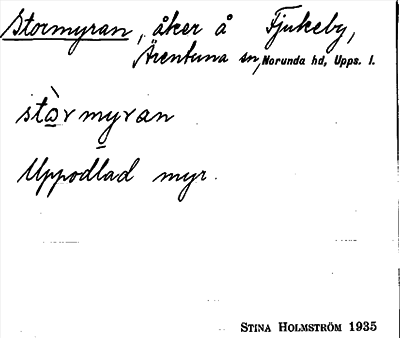 Stormyran, åker å Fjukeby,
Ärentuna sn, Norunda hd, Upps. l.
stòrmyran
Uppodlad myr.
STINA HOLMSTRÖM 1935